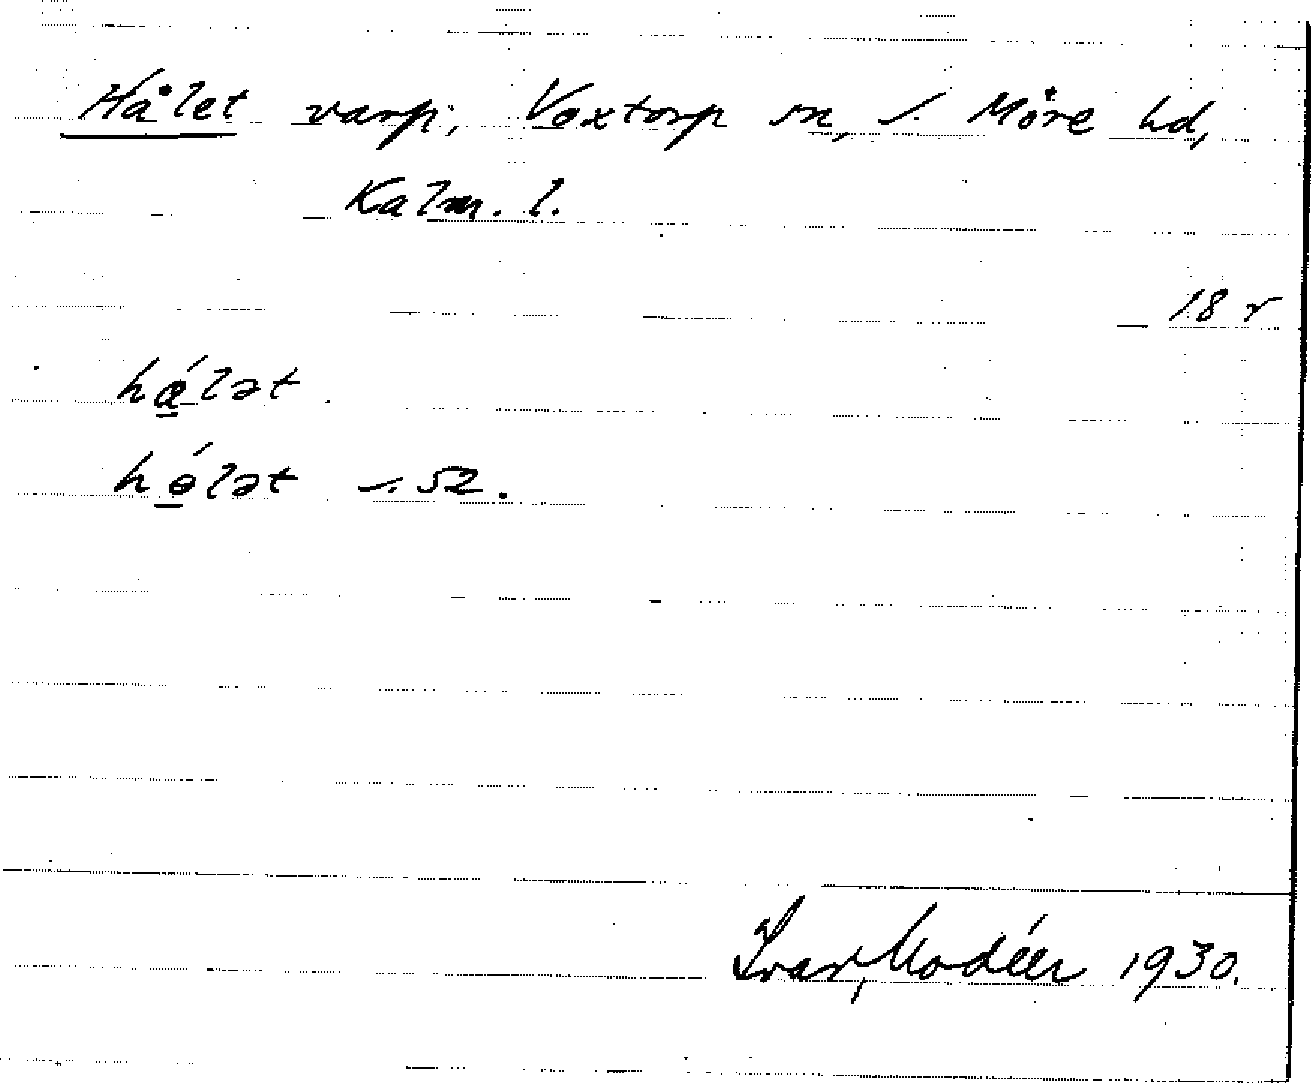 Hålet varp; Voxtorp sn, s. Möre hd,
Kalm. l.
18 r
hǽ̱lət.
hó̱lət s. 52.
Ivar Modéer 1930.